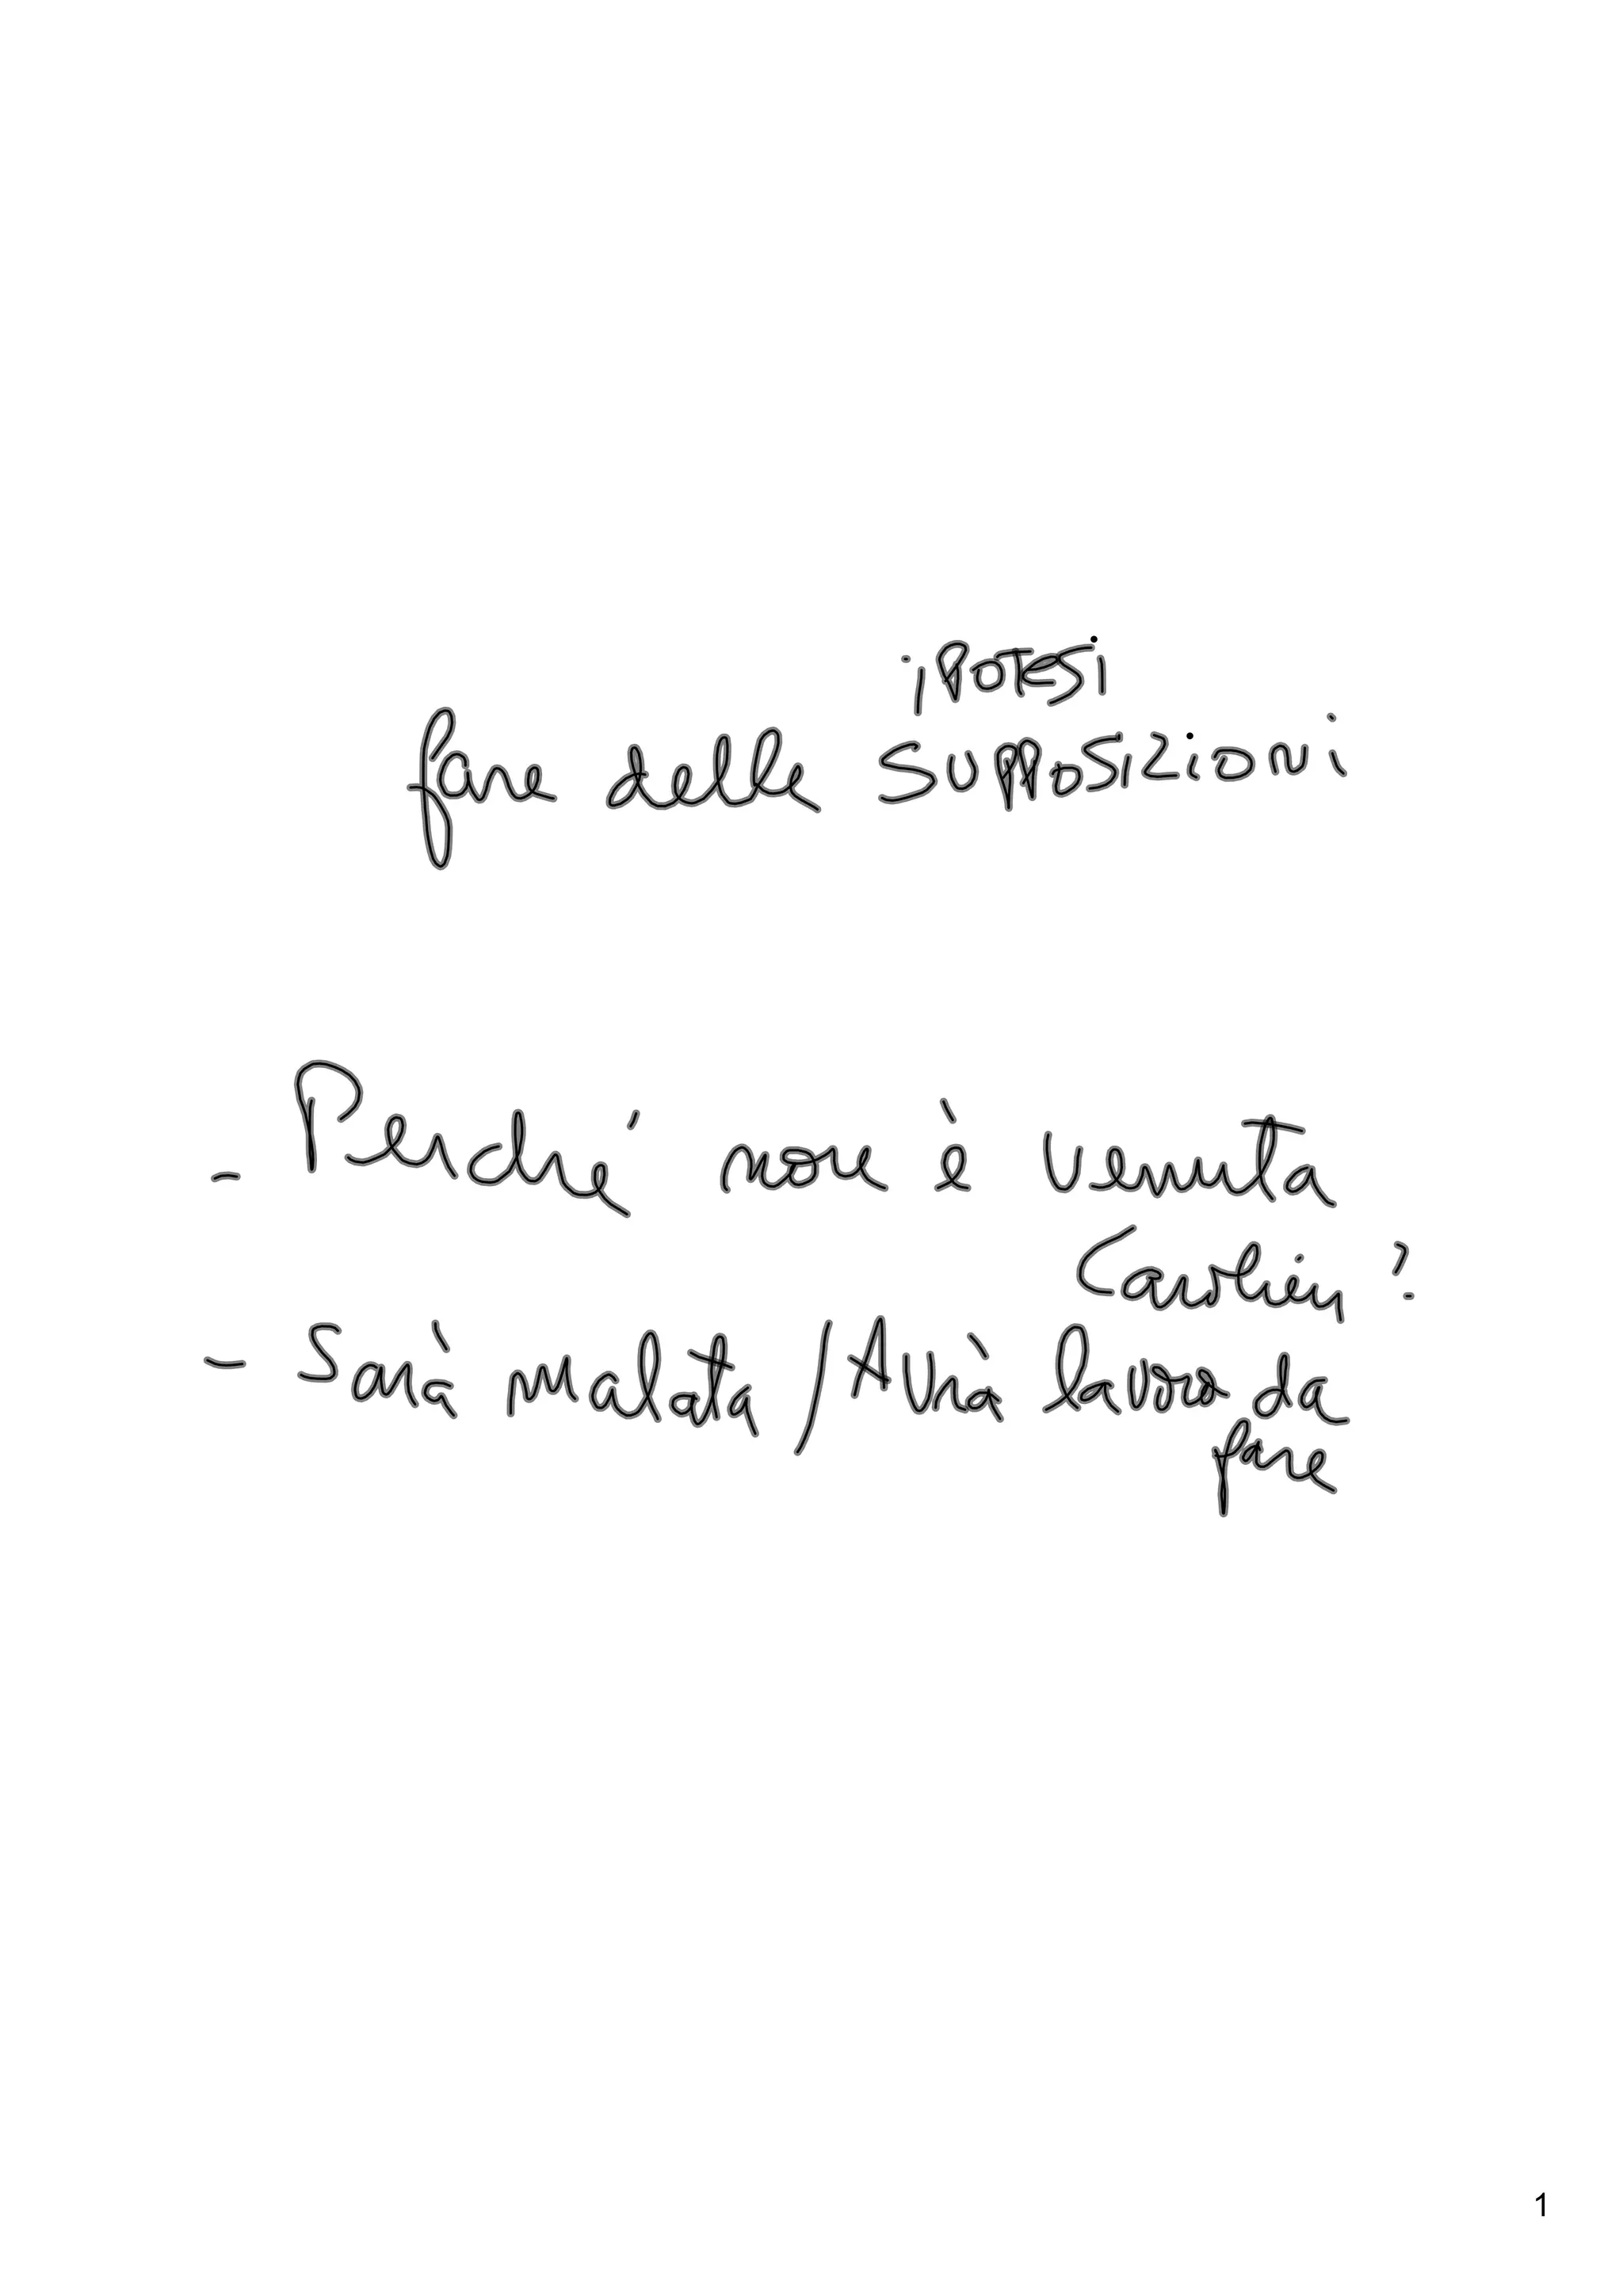 iPOTESi
fare delle SUPPOSIZiONi
- Perché non è venuta
Carolien?
- Sarà malata / Avrà lavoro da
fare
1